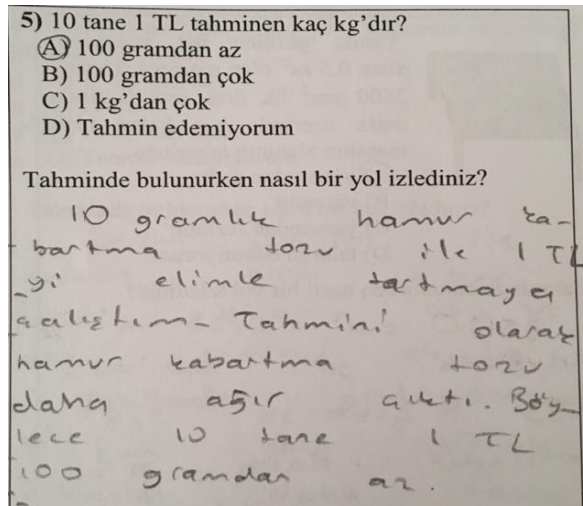 5) 10 tane 1 TL tahminen kaç kg’dır?
A) 100 gramdan az
B) 100 gramdan çok
C) 1 kg’dan çok
D) Tahmin edemiyorum
Tahminde bulunurken nasıl bir yol izlediniz?
10 gramlık hamur ka-
bartma tozu ile 1 TL
yi elimle tartmaya
çalıştım. Tahmini olarak
hamur kabartma tozu
daha ağır çıktı. Böy-
lece 10 tane 1 TL
100 gramdan az.